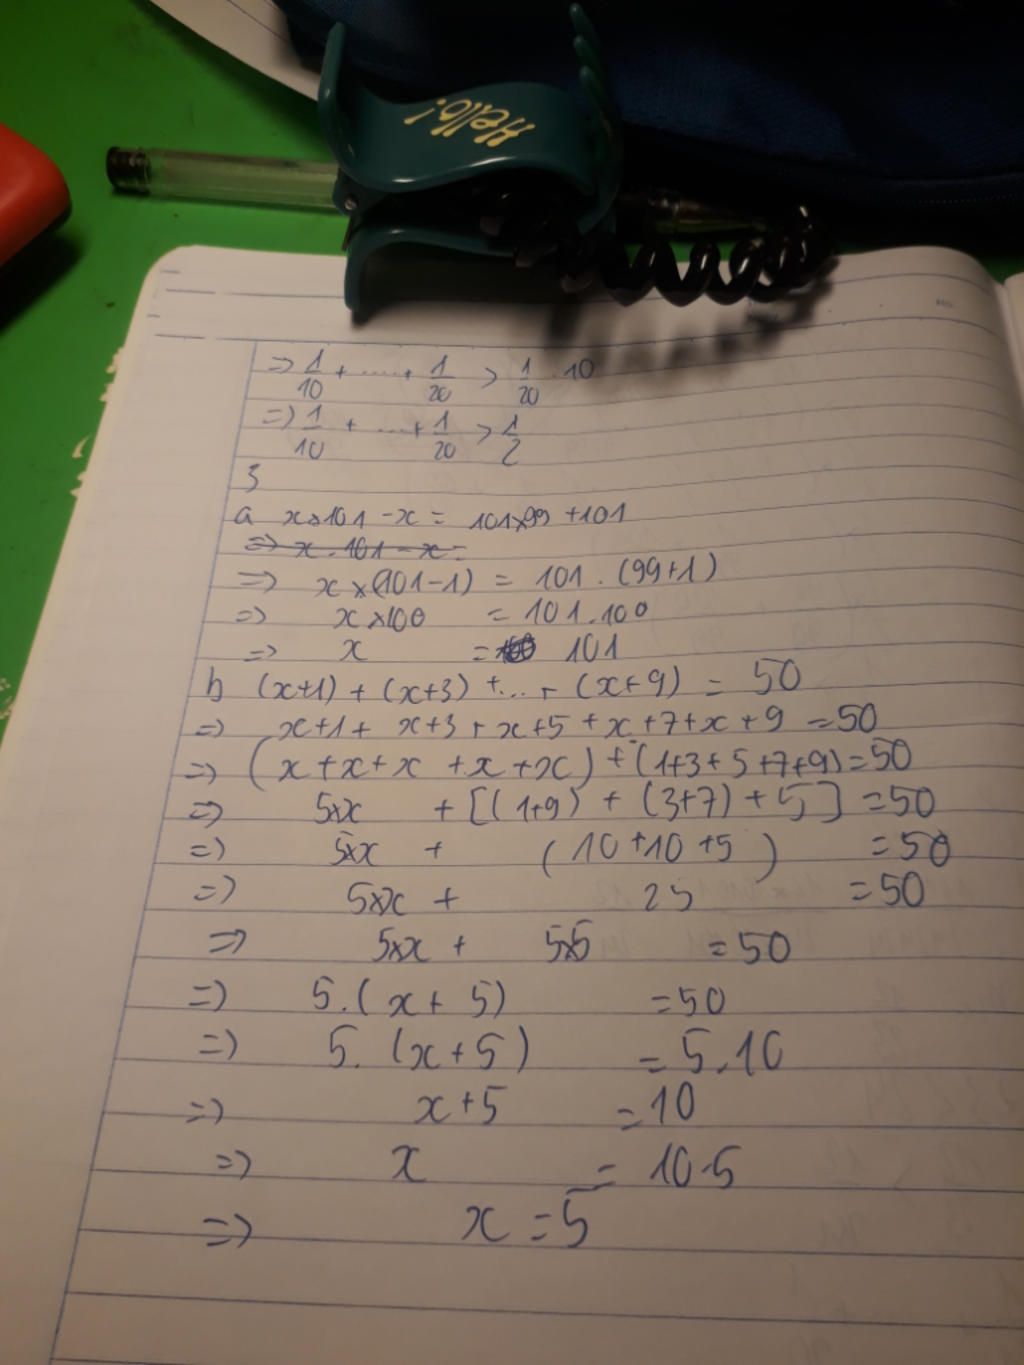 Hello!
=> 1/10 + ..... + 1/20 > 1/20 . 10
=> 1/10 + ... + 1/20 > 1/2
3
a x×101 - x = 101×99 + 101
=> x . 101 - x =
=> x × (101 - 1) = 101 . (99 + 1)
=> x × 100 = 101 . 100
=> x = 101
b (x+1) + (x+3) + ... + (x+9) = 50
=> x+1+ x+3 + x+5 + x+7+x+9 = 50
=> (x+x+x +x+x) + (1+3+5+7+9) = 50
=> 5×x + [(1+9) + (3+7) + 5] = 50
=> 5×x + (10+10+5) = 50
=> 5×x + 25 = 50
=> 5×x + 5×5 = 50
=> 5.(x+5) = 50
=> 5.(x+5) = 5.10
=> x+5 = 10
=> x = 10-5
=> x = 5